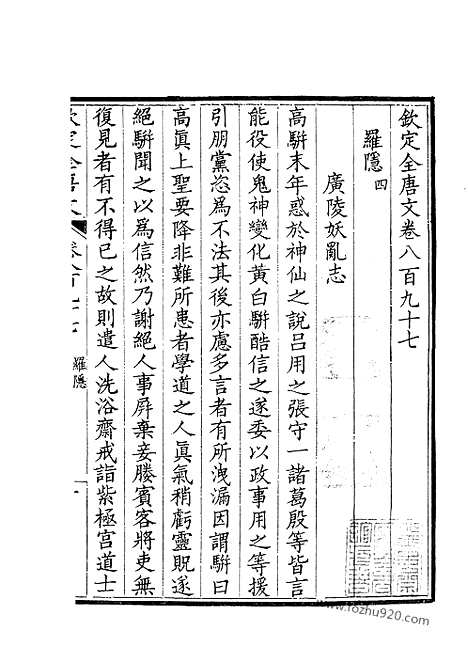 欽定全唐文卷八百九十七
羅隱四
廣陵妖亂志
高駢末年惑於神仙之說呂用之張守一諸葛殷等皆言
能役使鬼神變化黃白駢酷信之遂委以政事用之等援
引朋黨恣為不法其後亦慮多言者有所洩漏因謂駢曰
高眞上聖要降非難所患者學道之人眞氣稍虧靈貺遂
絕駢聞之以為信然乃謝絕人事屏棄妾媵賓客將吏無
復見者有不得已之故則遣人洗浴齋戒詣紫極宮道士
欽定全唐文
羅隱
一
www.fozhu920.com